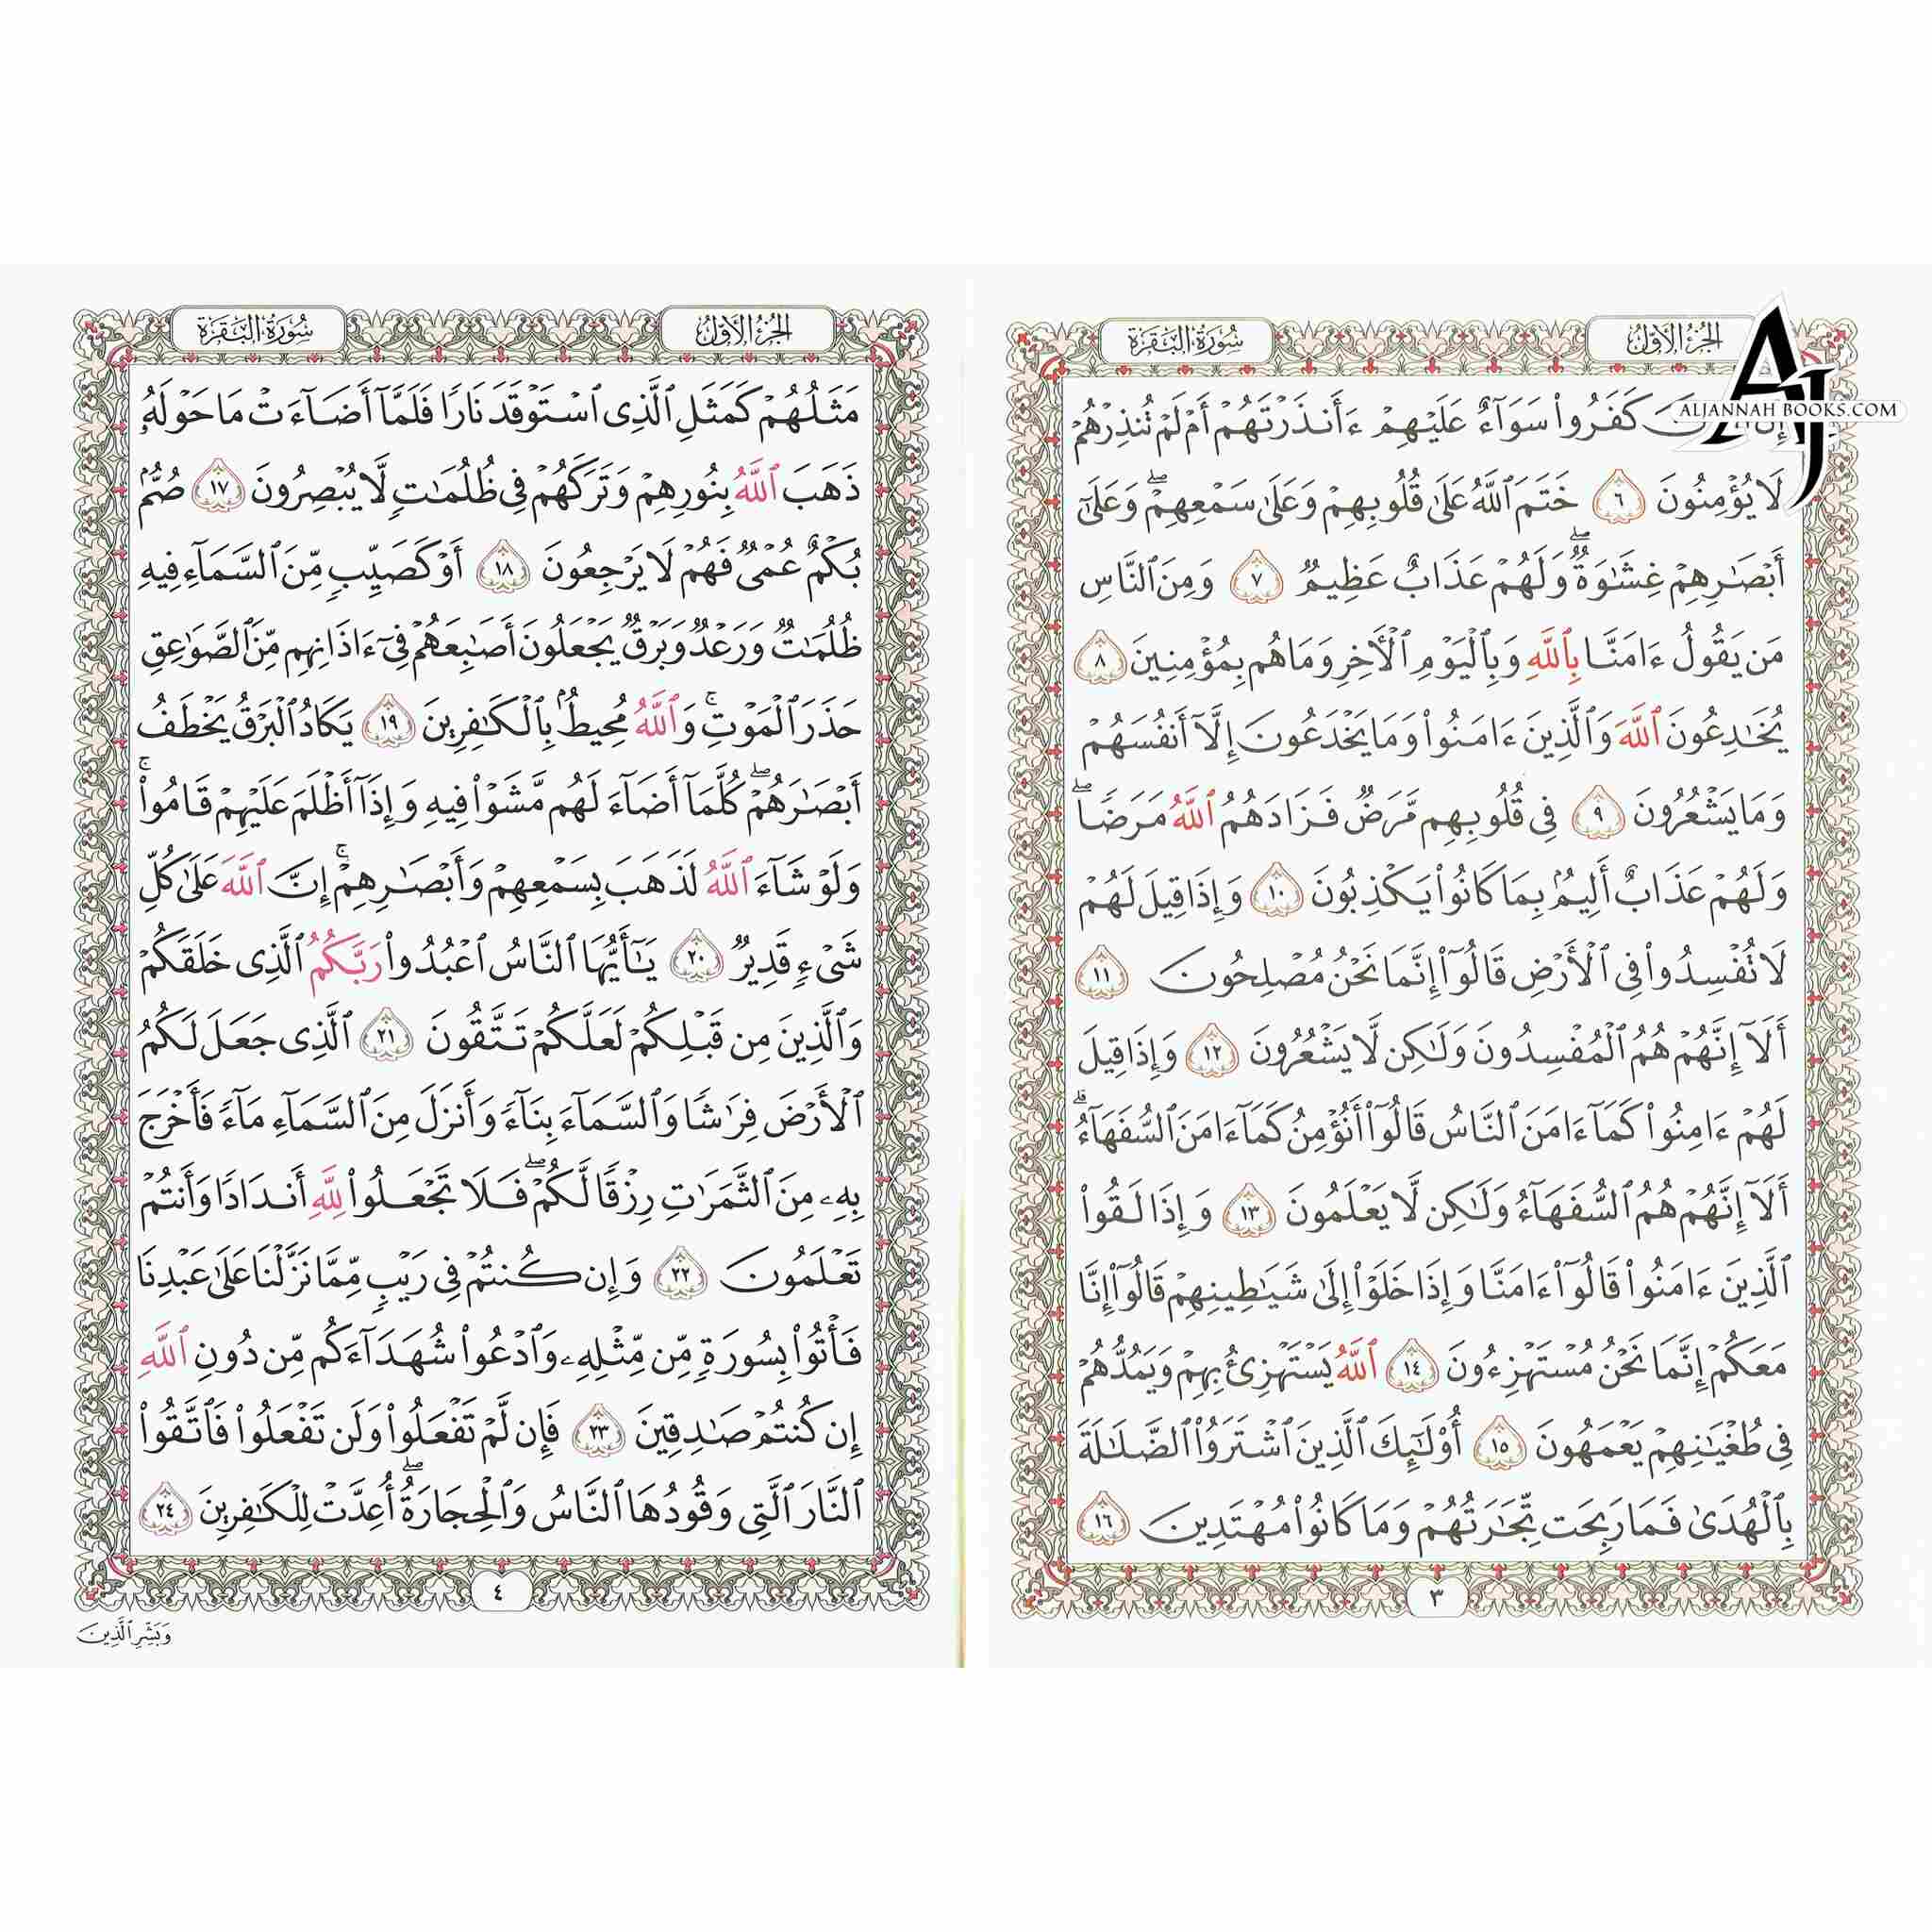 الجزء الأول
سورة البقرة
ALJANNAH BOOKS.COM
كَفَرُوا۟ سَوَآءٌ عَلَيْهِمْ ءَأَنذَرْتَهُمْ أَمْ لَمْ تُنذِرْهُمْ
لَا يُؤْمِنُونَ ٦ خَتَمَ ٱللَّهُ عَلَىٰ قُلُوبِهِمْ وَعَلَىٰ سَمْعِهِمْ ۖ وَعَلَىٰٓ
أَبْصَـٰرِهِمْ غِشَـٰوَةٌ ۖ وَلَهُمْ عَذَابٌ عَظِيمٌ ٧ وَمِنَ ٱلنَّاسِ
مَن يَقُولُ ءَامَنَّا بِٱللَّهِ وَبِٱلْيَوْمِ ٱلْأَخِرِ وَمَا هُم بِمُؤْمِنِينَ ٨
يُخَـٰدِعُونَ ٱللَّهَ وَٱلَّذِينَ ءَامَنُوا۟ وَمَا يَخْدَعُونَ إِلَّآ أَنفُسَهُمْ
وَمَا يَشْعُرُونَ ٩ فِى قُلُوبِهِم مَّرَضٌ فَزَادَهُمُ ٱللَّهُ مَرَضًا ۖ
وَلَهُمْ عَذَابٌ أَلِيمٌۢ بِمَا كَانُوا۟ يَكْذِبُونَ ١٠ وَإِذَا قِيلَ لَهُمْ
لَا تُفْسِدُوا۟ فِى ٱلْأَرْضِ قَالُوٓا۟ إِنَّمَا نَحْنُ مُصْلِحُونَ ١١
أَلَآ إِنَّهُمْ هُمُ ٱلْمُفْسِدُونَ وَلَـٰكِن لَّا يَشْعُرُونَ ١٢ وَإِذَا قِيلَ
لَهُمْ ءَامِنُوا۟ كَمَآ ءَامَنَ ٱلنَّاسُ قَالُوٓا۟ أَنُؤْمِنُ كَمَآ ءَامَنَ ٱلسُّفَهَآءُ ۗ
أَلَآ إِنَّهُمْ هُمُ ٱلسُّفَهَآءُ وَلَـٰكِن لَّا يَعْلَمُونَ ١٣ وَإِذَا لَقُوا۟
ٱلَّذِينَ ءَامَنُوا۟ قَالُوٓا۟ ءَامَنَّا وَإِذَا خَلَوْا۟ إِلَىٰ شَيَـٰطِينِهِمْ قَالُوٓا۟ إِنَّا
مَعَكُمْ إِنَّمَا نَحْنُ مُسْتَهْزِءُونَ ١٤ ٱللَّهُ يَسْتَهْزِئُ بِهِمْ وَيَمُدُّهُمْ
فِى طُغْيَـٰنِهِمْ يَعْمَهُونَ ١٥ أُو۟لَـٰٓئِكَ ٱلَّذِينَ ٱشْتَرَوُا۟ ٱلضَّلَـٰلَةَ
بِٱلْهُدَىٰ فَمَا رَبِحَت تِّجَـٰرَتُهُمْ وَمَا كَانُوا۟ مُهْتَدِينَ ١٦
٣
الجزء الأول
سورة البقرة
مَثَلُهُمْ كَمَثَلِ ٱلَّذِى ٱسْتَوْقَدَ نَارًا فَلَمَّآ أَضَآءَتْ مَا حَوْلَهُۥ
ذَهَبَ ٱللَّهُ بِنُورِهِمْ وَتَرَكَهُمْ فِى ظُلُمَـٰتٍ لَّا يُبْصِرُونَ ١٧ صُمٌّۢ
بُكْمٌ عُمْىٌ فَهُمْ لَا يَرْجِعُونَ ١٨ أَوْ كَصَيِّبٍ مِّنَ ٱلسَّمَآءِ فِيهِ
ظُلُمَـٰتٌ وَرَعْدٌ وَبَرْقٌ يَجْعَلُونَ أَصَـٰبِعَهُمْ فِىٓ ءَاذَانِهِم مِّنَ ٱلصَّوَٰعِقِ
حَذَرَ ٱلْمَوْتِ ۚ وَٱللَّهُ مُحِيطٌۢ بِٱلْكَـٰفِرِينَ ١٩ يَكَادُ ٱلْبَرْقُ يَخْطَفُ
أَبْصَـٰرَهُمْ ۖ كُلَّمَآ أَضَآءَ لَهُم مَّشَوْا۟ فِيهِ وَإِذَآ أَظْلَمَ عَلَيْهِمْ قَامُوا۟ ۚ
وَلَوْ شَآءَ ٱللَّهُ لَذَهَبَ بِسَمْعِهِمْ وَأَبْصَـٰرِهِمْ ۚ إِنَّ ٱللَّهَ عَلَىٰ كُلِّ
شَىْءٍ قَدِيرٌ ٢٠ يَـٰٓأَيُّهَا ٱلنَّاسُ ٱعْبُدُوا۟ رَبَّكُمُ ٱلَّذِى خَلَقَكُمْ
وَٱلَّذِينَ مِن قَبْلِكُمْ لَعَلَّكُمْ تَتَّقُونَ ٢١ ٱلَّذِى جَعَلَ لَكُمُ
ٱلْأَرْضَ فِرَٰشًا وَٱلسَّمَآءَ بِنَآءً وَأَنزَلَ مِنَ ٱلسَّمَآءِ مَآءً فَأَخْرَجَ
بِهِۦ مِنَ ٱلثَّمَرَٰتِ رِزْقًا لَّكُمْ ۖ فَلَا تَجْعَلُوا۟ لِلَّهِ أَندَادًا وَأَنتُمْ
تَعْلَمُونَ ٢٢ وَإِن كُنتُمْ فِى رَيْبٍ مِّمَّا نَزَّلْنَا عَلَىٰ عَبْدِنَا
فَأْتُوا۟ بِسُورَةٍ مِّن مِّثْلِهِۦ وَٱدْعُوا۟ شُهَدَآءَكُم مِّن دُونِ ٱللَّهِ
إِن كُنتُمْ صَـٰدِقِينَ ٢٣ فَإِن لَّمْ تَفْعَلُوا۟ وَلَن تَفْعَلُوا۟ فَٱتَّقُوا۟
ٱلنَّارَ ٱلَّتِى وَقُودُهَا ٱلنَّاسُ وَٱلْحِجَارَةُ ۖ أُعِدَّتْ لِلْكَـٰفِرِينَ ٢٤
٤
وَبَشِّرِ ٱلَّذِينَ